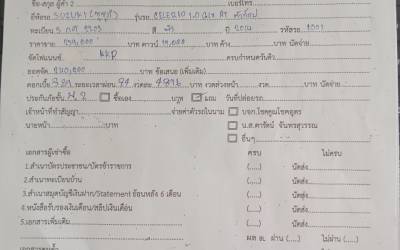 ชื่อ-สกุล ผู้ค้ำ 2 เบอร์โทร
ยี่ห้อรถ SUZUKI (ซูซูกิ) รุ่นรถ CELERIO 1.0 GLX AT
ทะเบียน 5 กศ สี ดำ ปี 2014 รหัสรถ 1001
ราคาขาย บาท ดาวน์ บาท นัดจ่าย
จัดไฟแนนซ์ KKP ครบกำหนดวันที่
ยอดจัด 240,000 บาท ข้อเสนอ (เพิ่มเติม)
ดอกเบี้ย ระยะเวลาผ่อน 84 งวดละ 4,896 บาท งวดล่วงหน้า งวด บาท นัดจ่าย
ประกันภัยชั้น ซื้อเอง บาท แถม วันที่ปล่อยรถ
เจ้าหน้าที่ทำสัญญา จ่ายค่าตัวรถในนาม บจก.โชคคูณโชคออโต
นายหน้า บาท น.ส.ดารัตน์ จันทรสุวรรณ
อื่นๆ
เอกสารผู้เช่าซื้อ ครบ ไม่ครบ
1.สำเนาบัตรประชาชน/บัตรข้าราชการ (.....) นัดส่ง
2.สำเนาทะเบียนบ้าน (.....) นัดส่ง
3.สำเนาสมุดบัญชีเงินฝาก/Statement ย้อนหลัง 6 เดือน (.....) นัดส่ง
4.หนังสือรับรองเงินเดือน/สลิปเงินเดือน (.....) นัดส่ง
5.เอกสารเพิ่มเติม (.....) นัดส่ง
ผล BL ผ่าน (.....) ไม่ผ่าน (.....)